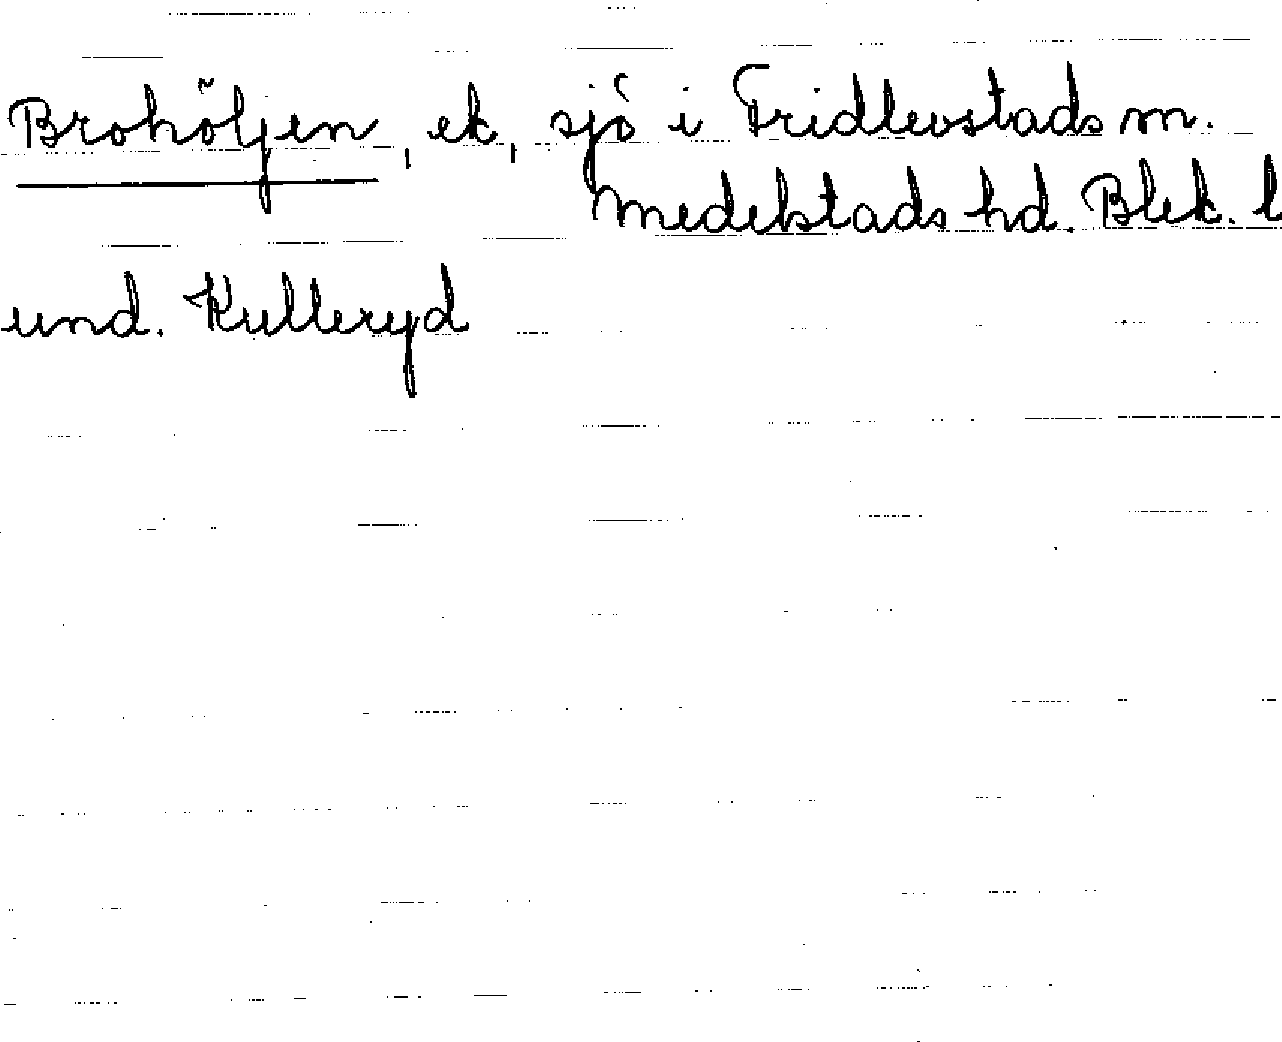 Broholjen, ek, sjö i Fridlevstads sn.
Medelstads hd. Blek. l
und. Kulleryd